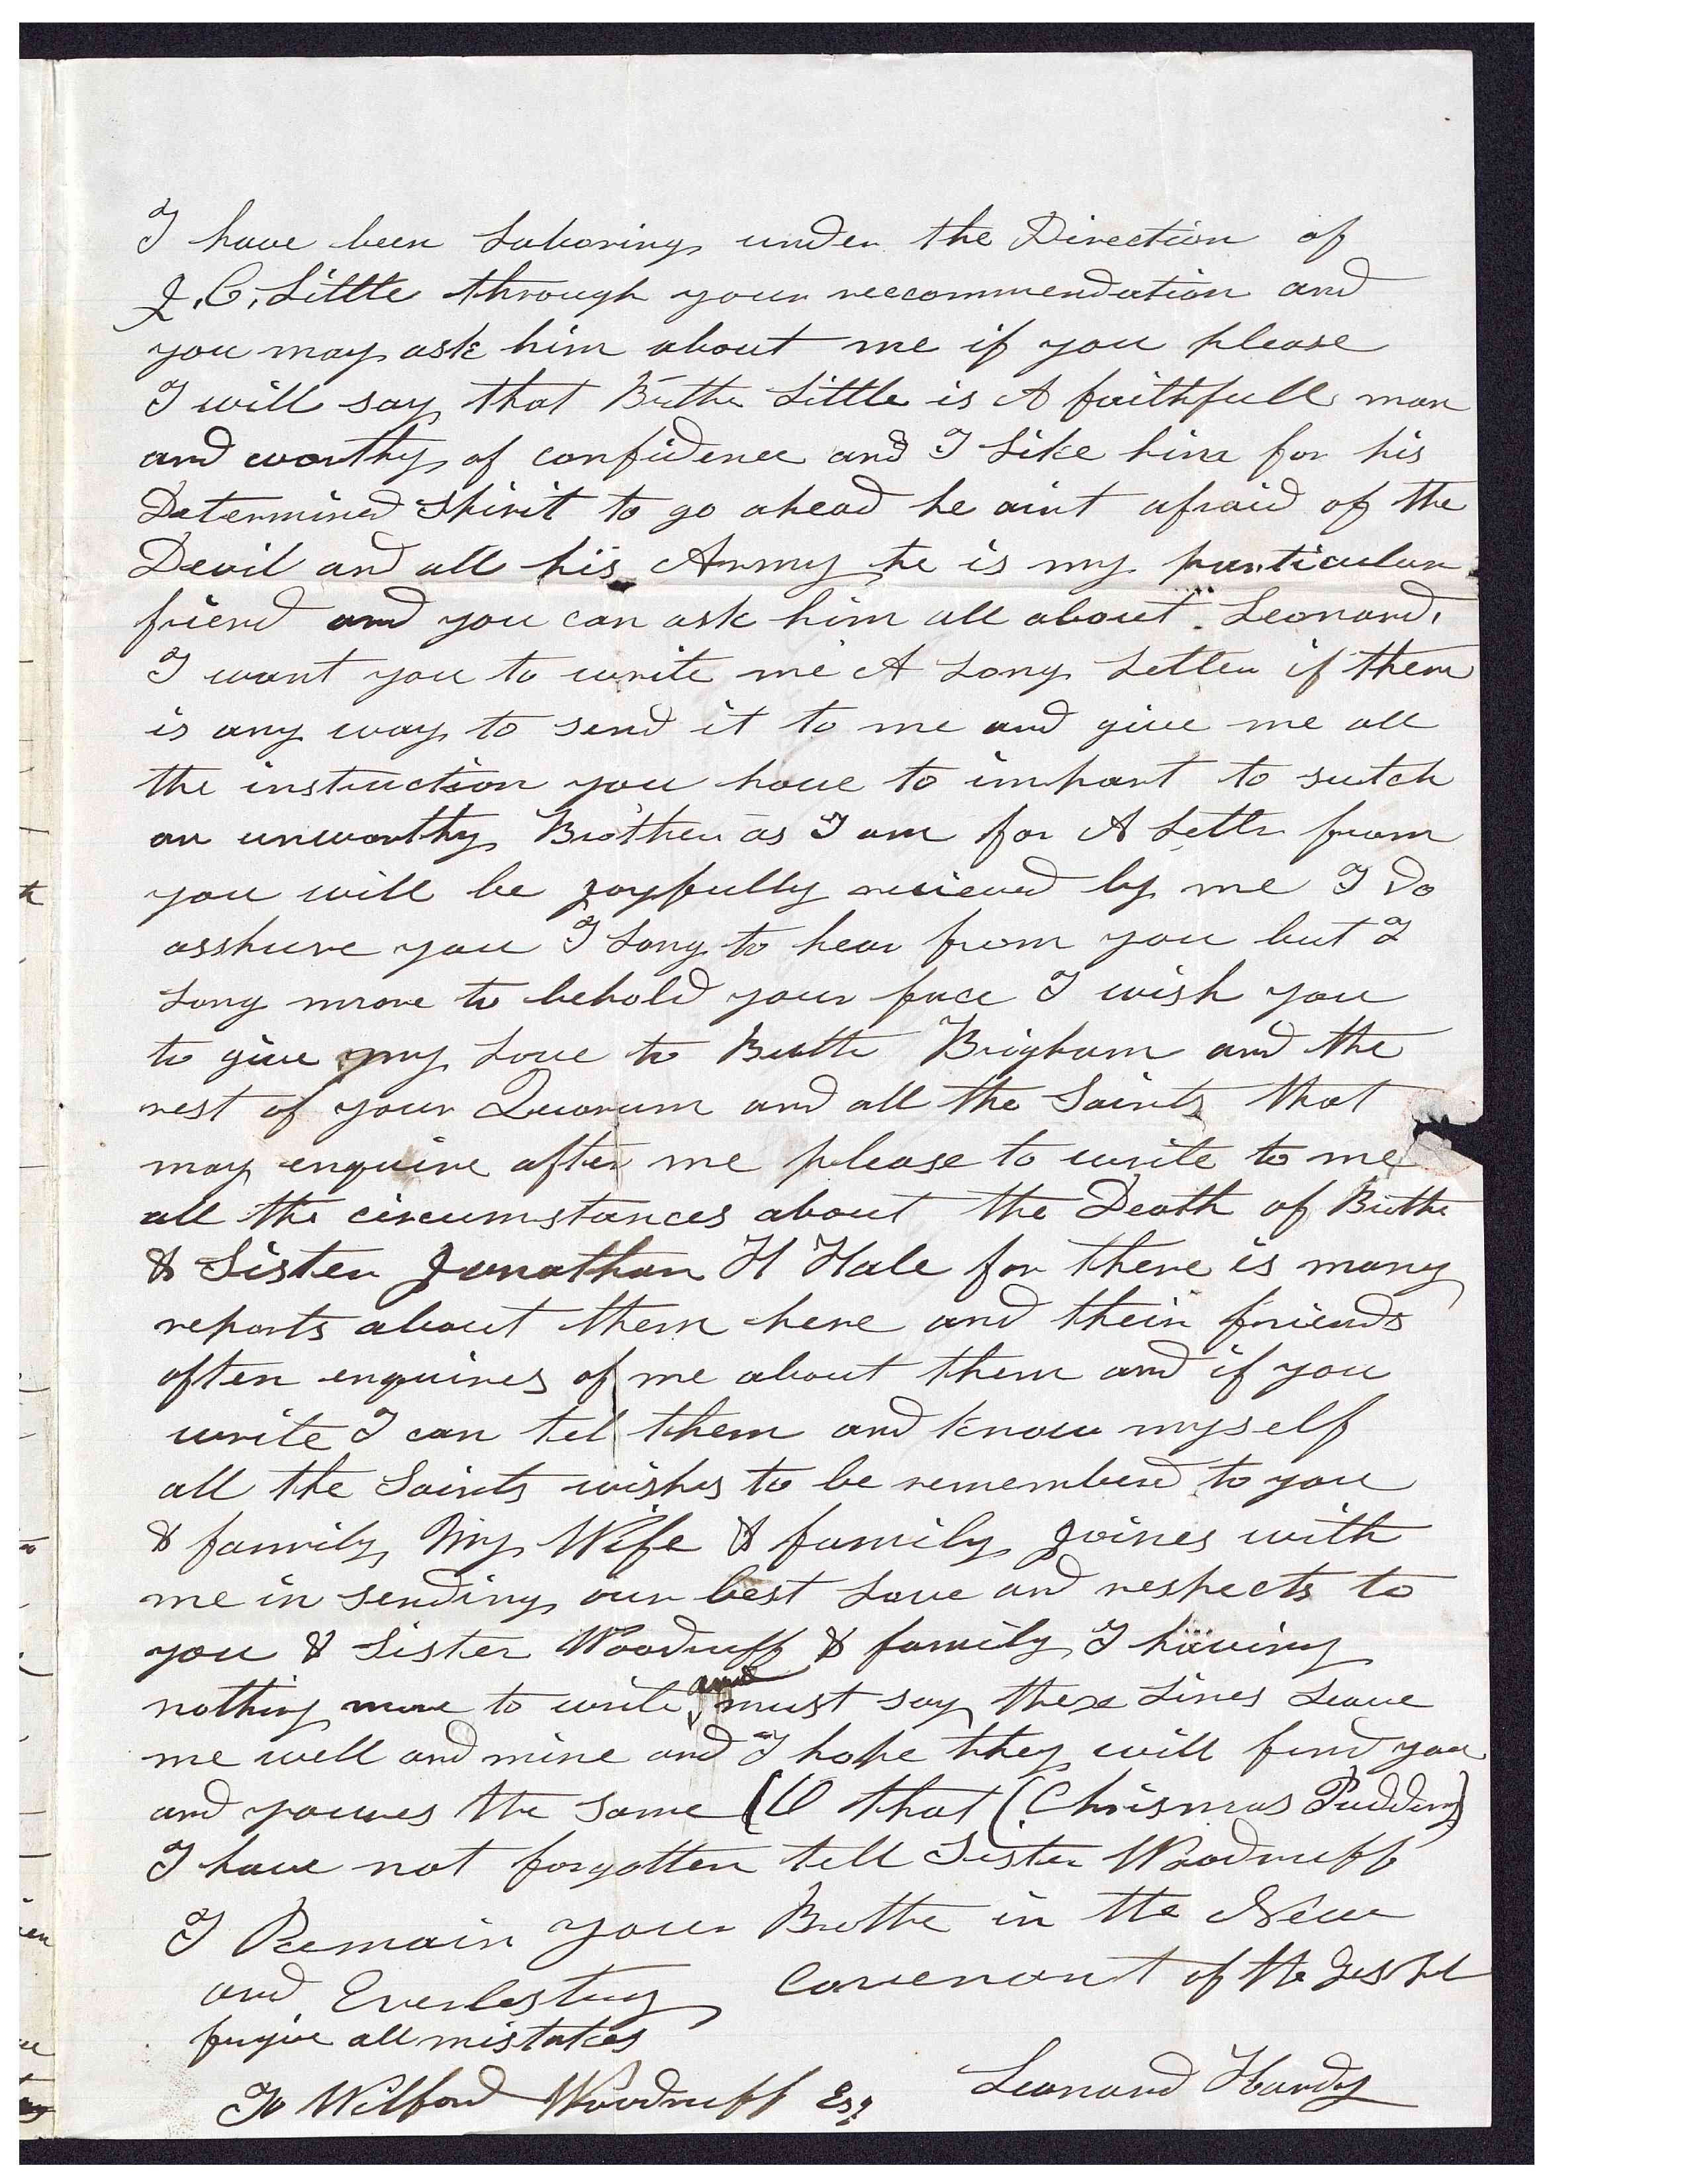 I have been Laboring under the Direction of
J. C. Little through your reccommendation and
you may ask him about me if you please
I will say that Bruthe Little is A faithfull man
and worthy of confidence and I Like him for his
Determined Spirit to go ahead he aint afraid of the
Devil and all his Army he is my particular
friend and you can ask him all about Leonard.
I want you to write me A Long Letter if there
is any way to send it to me and give me all
the instruction you have to impart to sutch
an unworthy Brother as I am for A Lettr from
you will be joyfully recieved by me I Do
asshure you I Long to hear from you but I
Long more to behold your face I wish you
to give my Love to Bruthe Brigham and the
rest of your Quorum and all the Saints that
may enquire after me please to write to me
all the circumstances about the Death of Bruthe
& Sister Jonathan H Hale for there is many
reports about them here and their friends
often enquires of me about them and if you
write I can tel them and know myself
all the Saints wishes to be rememberd to you
& family My Wife & family Joines with
me in sending our best Love and respects to
you & Sister Woodruff & family I having
nothing more to write and must say these Lines Leave
me well and mine and I hope they will find you
and youres the same (O that (Chrismas Pudding)
I have not forgotten tell Sister Woodruff
I Remain your Bruthe in the New
and Everlasting Covenant of the Gospel
forgive all mistakes
To Wilford Woodruff Esq Leonard Hardy